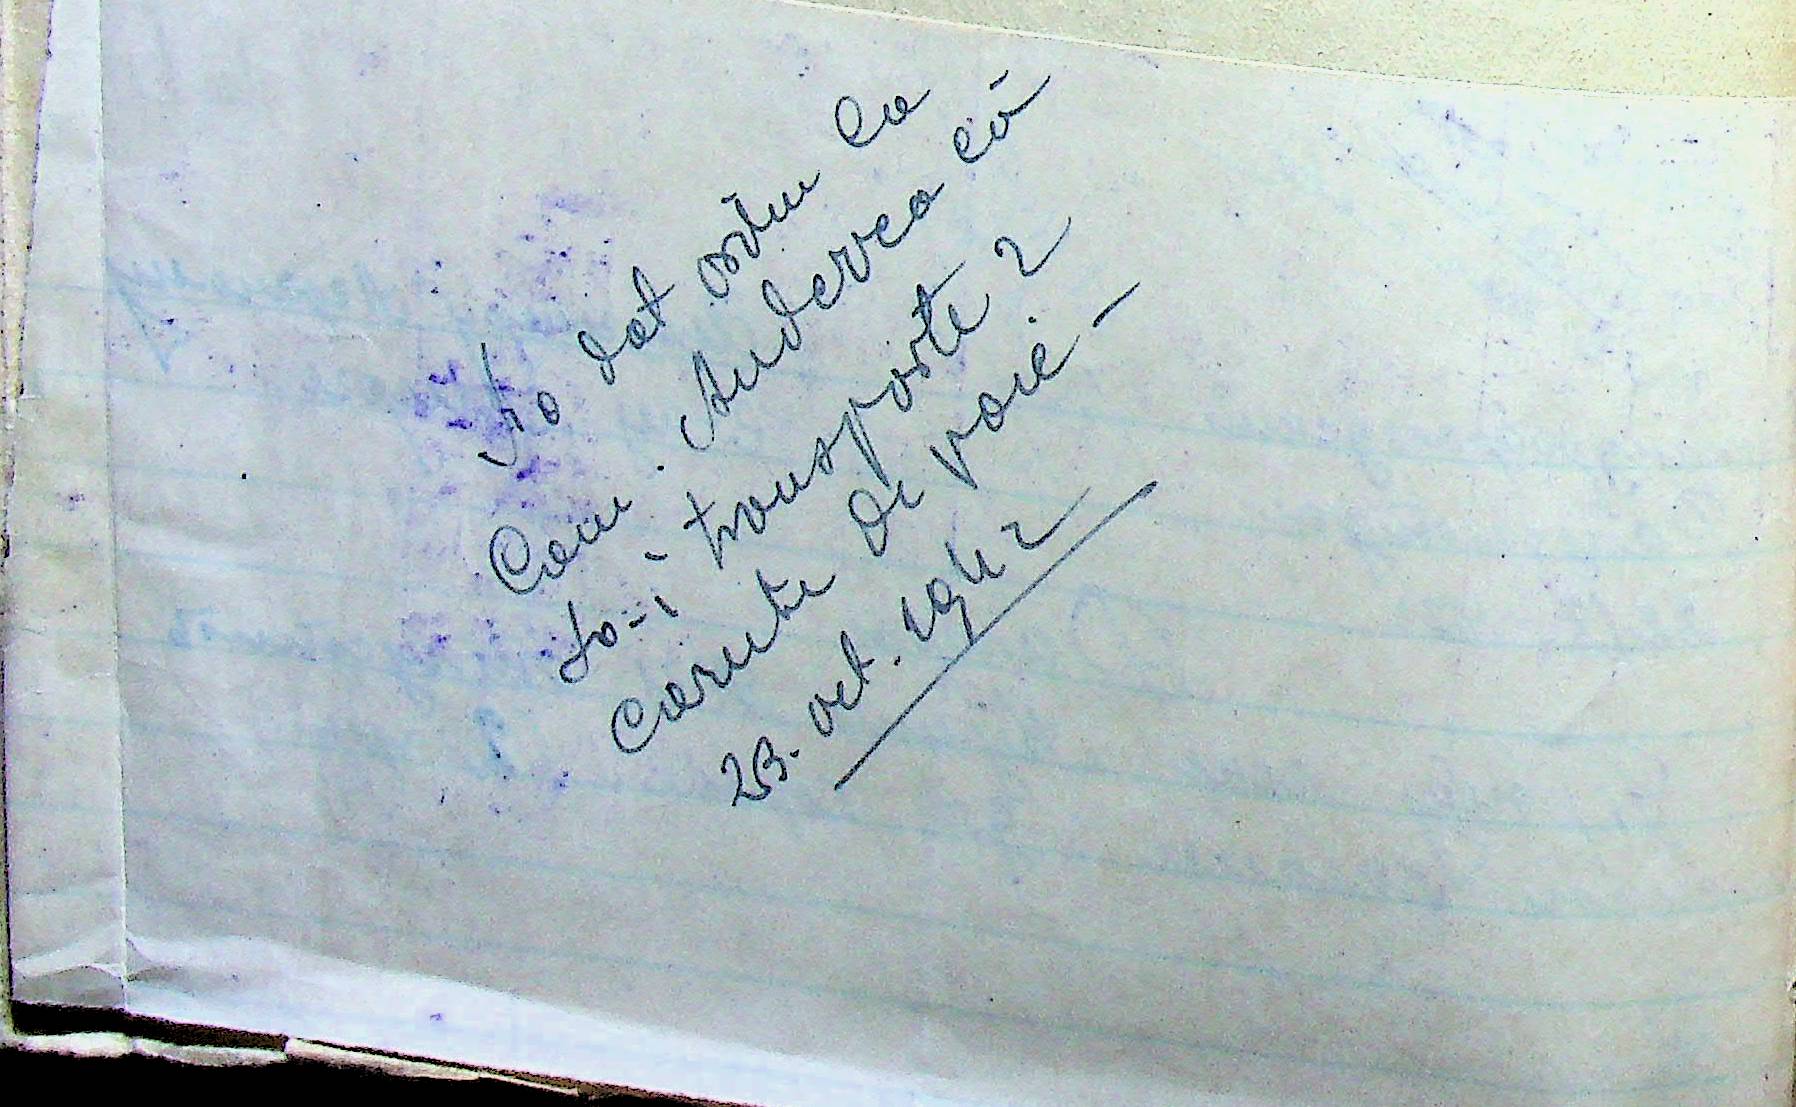 S'a dat ordin la
Com. Auderrea că
să-i transporte 2
carute de paie -
29. oct. 1942